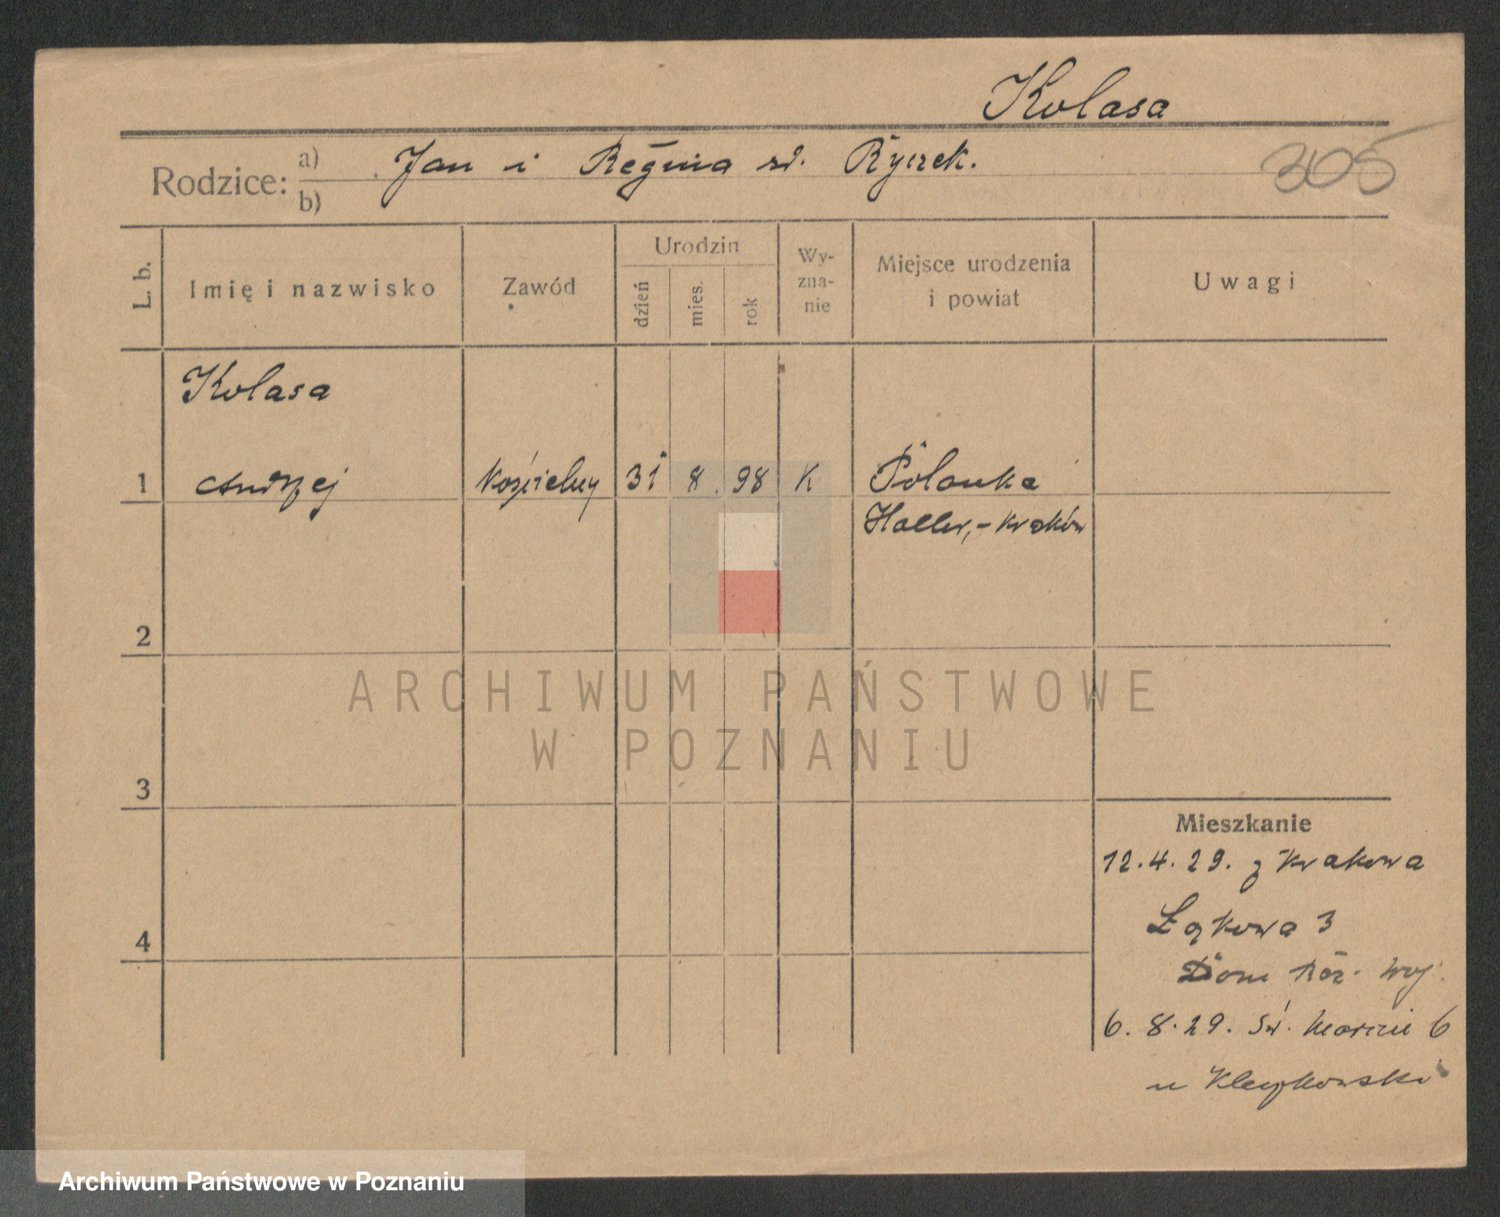 Kolasa
Rodzice: a) Jan i Regina zd. Ryczek.
b)
305
L. b.
Imię i nazwisko
Zawód
Urodzin
dzień
mies.
rok
Wy-
zna-
nie
Miejsce urodzenia
i powiat
Uwagi
Kolasa
1 Andrzej Kościelny 31 8. 98 K Polanka
Haller,-Kraków
2
ARCHIWUM PAŃSTWOWE
W POZNANIU
3
Mieszkanie
12.4.29. z Krakowa
4
Łąkowa 3
Dom
6. 8.29. Św. Marcin 6
u
Archiwum Państwowe w Poznaniu